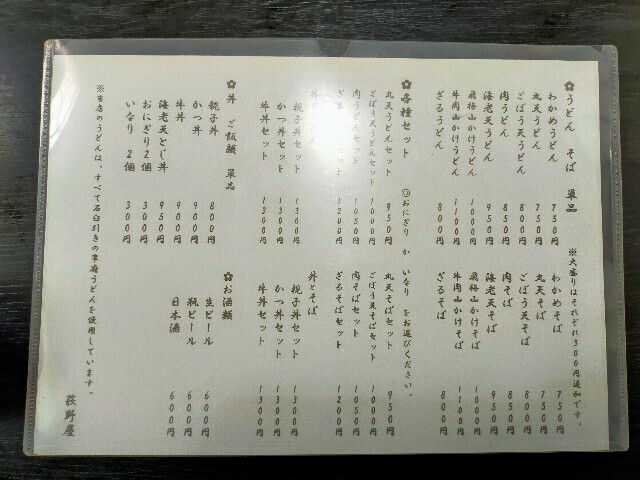 ✿うどん そば 単品 ※大盛りはそれぞれ300円追加です。
わかめうどん 750円 わかめそば 750円
丸天うどん 750円 丸天そば 750円
ごぼう天うどん 800円 ごぼう天そば 800円
肉うどん 850円 肉そば 850円
海老天うどん 950円 海老天そば 950円
飛梅山かけうどん 1000円 飛梅山かけそば 1000円
牛肉山かけうどん 1100円 牛肉山かけそば 1100円
ざるうどん 800円 ざるそば 800円
✿各種セット ◎おにぎり か いなり をお選びください。
丸天うどんセット 950円 丸天そばセット 950円
ごぼう天うどんセット 1000円 ごぼう天そばセット 1000円
肉うどんセット 1050円 肉そばセット 1050円
ざる セット 1200円 ざるそばセット 1200円
丼と 丼とそば
親子丼セット 1300円 親子丼セット 1300円
かつ丼セット 1300円 かつ丼セット 1300円
牛丼セット 1300円 牛丼セット 1300円
✿丼 ご飯類 単品 ✿お酒類
親子丼 800円 生ビール 600円
かつ丼 900円 瓶ビール 600円
牛丼 900円 日本酒 600円
海老天とじ丼 950円
おにぎり2個 300円
いなり 2個 300円
※当店のうどんは、すべて石臼引きの うどんを使用しています。
荻野屋